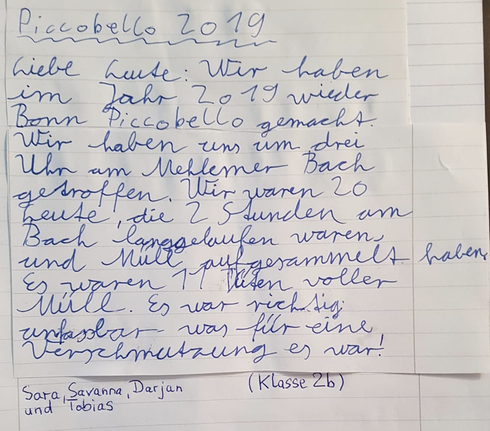 Piccobello 2019
Liebe Leute: Wir haben
im Jahr 2019 wieder
Bonn Piccobello gemacht.
Wir haben uns um drei
Uhr am Mehlemer Bach
getroffen. Wir waren 20
Leute, die 2 Stunden am
Bach langgelaufen waren
und Müll aufgesammelt haben.
Es waren 11 Tüten voller
Müll. Es war richtig
unfassbar was für eine
Verschmutzung es war!
Sara, Savanna, Darjan (Klasse 2b)
und Tobias